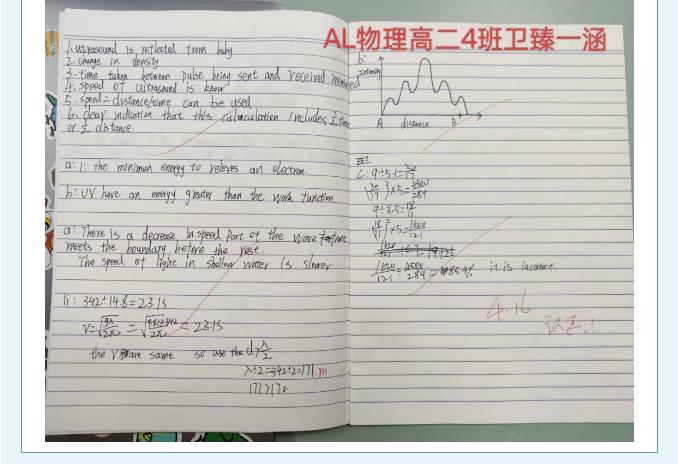 AL物理高二4班卫臻一涵
1. Utrasound is reflected from baby
2. change in density
3. time taken between pulse being sent and received received
4. speed of ultrasound is know
5. speed = distance/time can be used
6. clear indication that this calculation includes ½ time
or ½ distance.
a: 1: the minimum energy to releves an electron.
b: UV have an energy greater than the work function
a: There is a decrease in speed part of the wave
meets the boundary before the rest.
The speed of light in shallow water is slower.
1i: 342÷14.8=23.15
= 23.15
the V are same so use the d>λ/2
λ÷2=342÷2=171 m
171>170
b:
intensity
A distance B
it is incorrect.
4.16
认真!